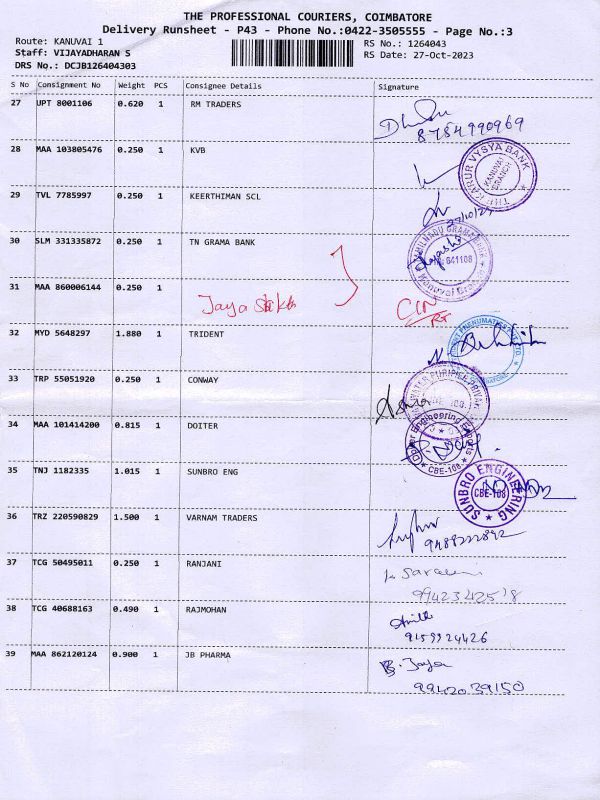 THE PROFESSIONAL COURIERS, COIMBATORE
Delivery Runsheet - P43 - Phone No.:0422-3505555 - Page No.:3
Route: KANUVAI 1 RS No.: 1264043
Staff: VIJAYADHARAN S RS Date: 27-Oct-2023
DRS No.: DCJB126404303
S No Consignment No Weight PCS Consignee Details Signature
27 UPT 8001106 0.620 1 RM TRADERS
8784990969
28 MAA 103805476 0.250 1 KVB
THE KARUR VYSYA BANK
KANUVAI BRANCH
29 TVL 7785997 0.250 1 KEERTHIMAN SCL
27/10/23
30 SLM 331335872 0.250 1 TN GRAMA BANK
641108
31 MAA 860006144 0.250 1
Jaya
32 MYD 5648297 1.880 1 TRIDENT
33 TRP 55051920 0.250 1 CONWAY
34 MAA 101414200 0.815 1 DOITER
CBE-108
35 TNJ 1182335 1.015 1 SUNBRO ENG
SUNBRO ENGINEERING
CBE-108
36 TRZ 220590829 1.500 1 VARNAM TRADERS
37 TCG 50495011 0.250 1 RANJANI
38 TCG 40688163 0.490 1 RAJMOHAN
9159924426
39 MAA 862120124 0.900 1 JB PHARMA
B. Jaya
9942039150